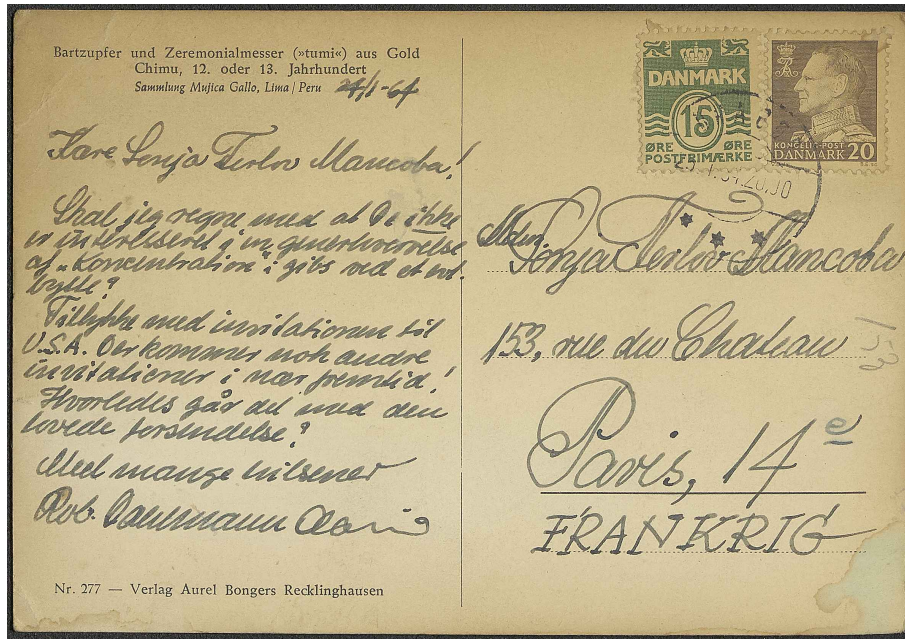 Bartzupfer und Zeremonialmesser (»tumi«) aus Gold
Chimu, 12. oder 13. Jahrhundert
Sammlung Mujica Gallo, Lima / Peru
24/1-64
Kære Sonja Ferlov Mancoba!
Skal jeg regne med at De ikke
er interesseret i en generhvervelse
af "Koncentration" i gibs ved et
Tillykke med invitationen til
U.S.A. Der kommer nok andre
invitationer i nær fremtid!
Hvorledes går det med den
lovede forsendelse?
Med mange hilsener
Rob. Dahlmann Olsen
Nr. 277 — Verlag Aurel Bongers Recklinghausen
DANMARK
15
ØRE ØRE
POSTFRIMÆRKE
KONGELIG POST
DANMARK 20
Sonja Ferlov Mancoba
153, rue du Chateau
Paris, 14e
FRANKRIG
153